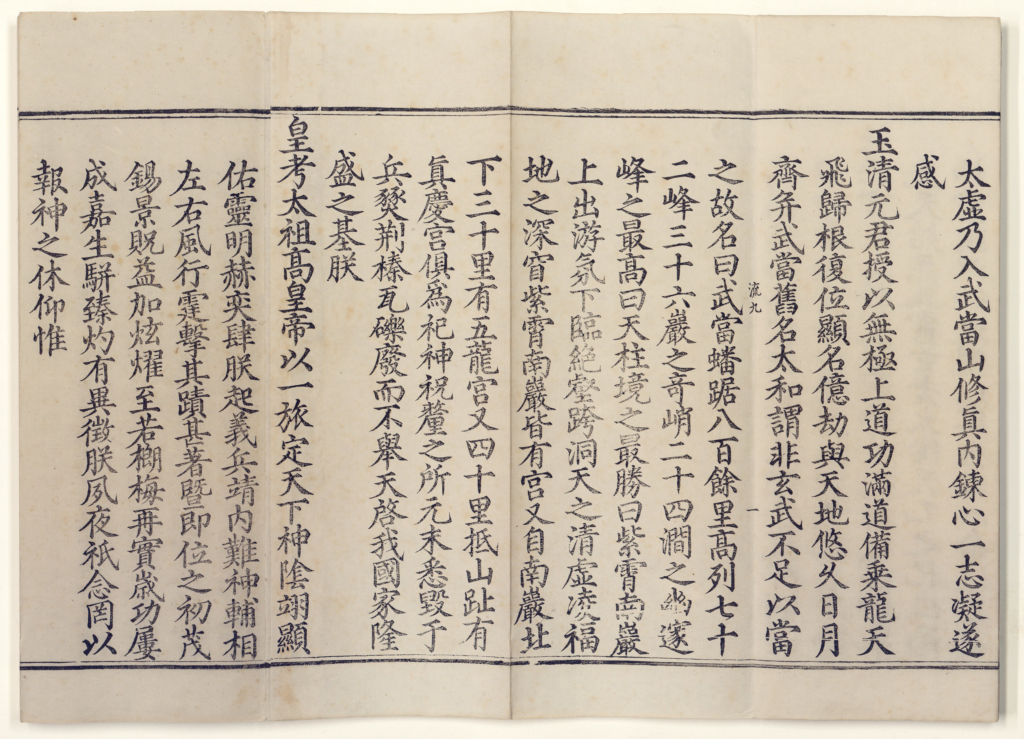 太虛乃入武當山修眞內鍊心一志凝遂
感
玉清元君授以無極上道功滿道備乘龍天
飛歸根復位顯名億劫與天地悠久日月
齊并武當舊名太和謂非玄武不足以當
流九
一
之故名曰武當蟠踞八百餘里高列七十
二峰三十六巖之奇峭二十四澗之幽邃
峰之最高曰天柱境之最勝曰紫霄南巖
上出游氛下臨絕壑跨洞天之清虛凌福
地之深窅紫霄南巖皆有宮又自南巖北
下三十里有五龍宮又四十里抵山趾有
眞慶宮俱爲祀神祝釐之所元末悉毀于
兵燹荆榛瓦礫廢而不舉天啓我國家隆
盛之基朕
皇考太祖高皇帝以一旅定天下神陰翊顯
佑靈明赫奕肆朕起義兵靖內難神輔相
左右風行霆擊其蹟甚著暨即位之初茂
錫景貺益加炫燿至若榔梅再實歲功屢
成嘉生駢臻灼有異徵朕夙夜祇念罔以
報神之休仰惟